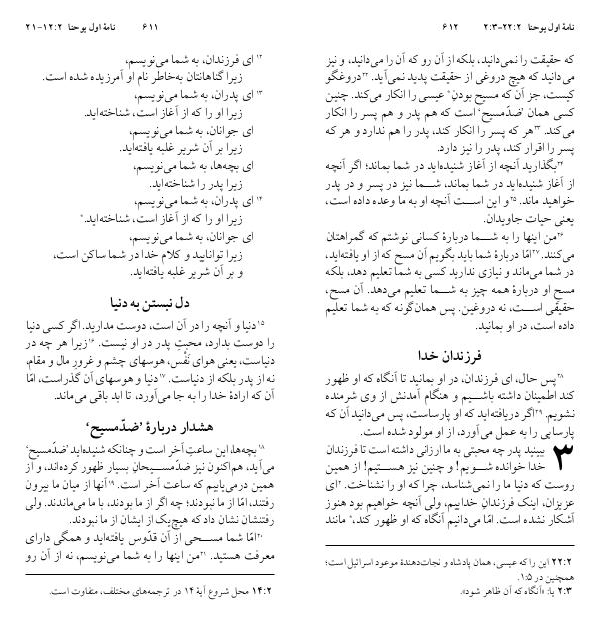 ۶۱۱ نامهٔ اول یوحنا ۱۲:۲-۲۱
۱۲ ای فرزندان، به شما می‌نویسم،
زیرا گناهانتان به‌خاطر نام او آمرزیده شده است.
۱۳ ای پدران، به شما می‌نویسم،
زیرا او را که از آغاز است، شناخته‌اید.
ای جوانان، به شما می‌نویسم،
زیرا بر آن شریر غلبه یافته‌اید.
ای بچه‌ها، به شما می‌نویسم،
زیرا پدر را شناخته‌اید.
۱۴ ای پدران، به شما می‌نویسم،
زیرا او را که از آغاز است، شناخته‌اید.*
ای جوانان، به شما می‌نویسم،
زیرا توانایید و کلام خدا در شما ساکن است،
و بر آن شریر غلبه یافته‌اید.
دل نبستن به دنیا
۱۵دنیا و آنچه را در آن است، دوست مدارید. اگر کسی دنیا
را دوست بدارد، محبتِ پدر در او نیست. ۱۶زیرا هر چه در
دنیاست، یعنی هوای نَفْس، هوسهای چشم و غرورِ مال و مقام،
نه از پدر بلکه از دنیاست. ۱۷دنیا و هوسهای آن گذراست، امّا
آن که ارادهٔ خدا را به جا می‌آورد، تا ابد باقی می‌ماند.
هشدار دربارهٔ ’ضدّمسیح‘
۱۸ بچه‌ها، این ساعتِ آخر است و چنانکه شنیده‌اید ’ضدّمسیح‘
می‌آید، هم‌اکنون نیز ضدّمسیحانِ بسیار ظهور کرده‌اند، و از
همین درمی‌یابیم که ساعت آخر است. ۱۹آنها از میان ما بیرون
رفتند، امّا از ما نبودند؛ چه اگر از ما بودند، با ما می‌ماندند. ولی
رفتنشان نشان داد که هیچ‌یک از ایشان از ما نبودند.
۲۰امّا شما مسحی از آن قدّوس یافته‌اید و همگی دارای
معرفت هستید. ۲۱من اینها را به شما می‌نویسم، نه از آن رو
۱۴:۲ محل شروع آیهٔ ۱۴ در ترجمه‌های مختلف، متفاوت است.
نامهٔ اول یوحنا ۲۲:۲-۲:۳ ۶۱۲
که حقیقت را نمی‌دانید، بلکه از آن رو که آن را می‌دانید، و نیز
می‌دانید که هیچ دروغی از حقیقت پدید نمی‌آید. ۲۲دروغگو
کیست، جز آن که مسیح بودنِ* عیسی را انکار می‌کند. چنین
کسی همان ’ضدّمسیح‘ است که هم پدر و هم پسر را انکار
می‌کند. ۲۳هر که پسر را انکار کند، پدر را هم ندارد و هر که
پسر را اقرار کند، پدر را نیز دارد.
۲۴بگذارید آنچه از آغاز شنیده‌اید در شما بماند؛ اگر آنچه
از آغاز شنیده‌اید در شما بماند، شما نیز در پسر و در پدر
خواهید ماند. ۲۵و این است آنچه او به ما وعده داده است،
یعنی حیات جاویدان.
۲۶من اینها را به شما دربارهٔ کسانی نوشتم که گمراهتان
می‌کنند. ۲۷امّا دربارهٔ شما باید بگویم آن مسح که از او یافته‌اید،
در شما می‌ماند و نیازی ندارید کسی به شما تعلیم دهد، بلکه
مسحِ او دربارهٔ همه چیز به شما تعلیم می‌دهد. آن مسح،
حقیقی است، نه دروغین. پس همان‌گونه که به شما تعلیم
داده است، در او بمانید.
فرزندان خدا
۲۸پس حال، ای فرزندان، در او بمانید تا آنگاه که او ظهور
کند اطمینان داشته باشیم و هنگام آمدنش از وی شرمنده
نشویم. ۲۹اگر دریافته‌اید که او پارساست، پس می‌دانید آن که
پارسایی را به عمل می‌آورد، از او مولود شده است.
۳ ببینید پدر چه محبتی به ما ارزانی داشته است تا فرزندان
خدا خوانده شویم! و چنین نیز هستیم! از همین
روست که دنیا ما را نمی‌شناسد، چرا که او را نشناخت. ۲ای
عزیزان، اینک فرزندان خداییم، ولی آنچه خواهیم بود هنوز
آشکار نشده است. امّا می‌دانیم آنگاه که او ظهور کند،* مانند
۲۲:۲ این را که عیسی، همان پادشاه و نجات‌دهندهٔ موعود اسرائیل است؛
همچنین در ۱:۵.
۲:۳ یا: «آنگاه که آن ظاهر شود».